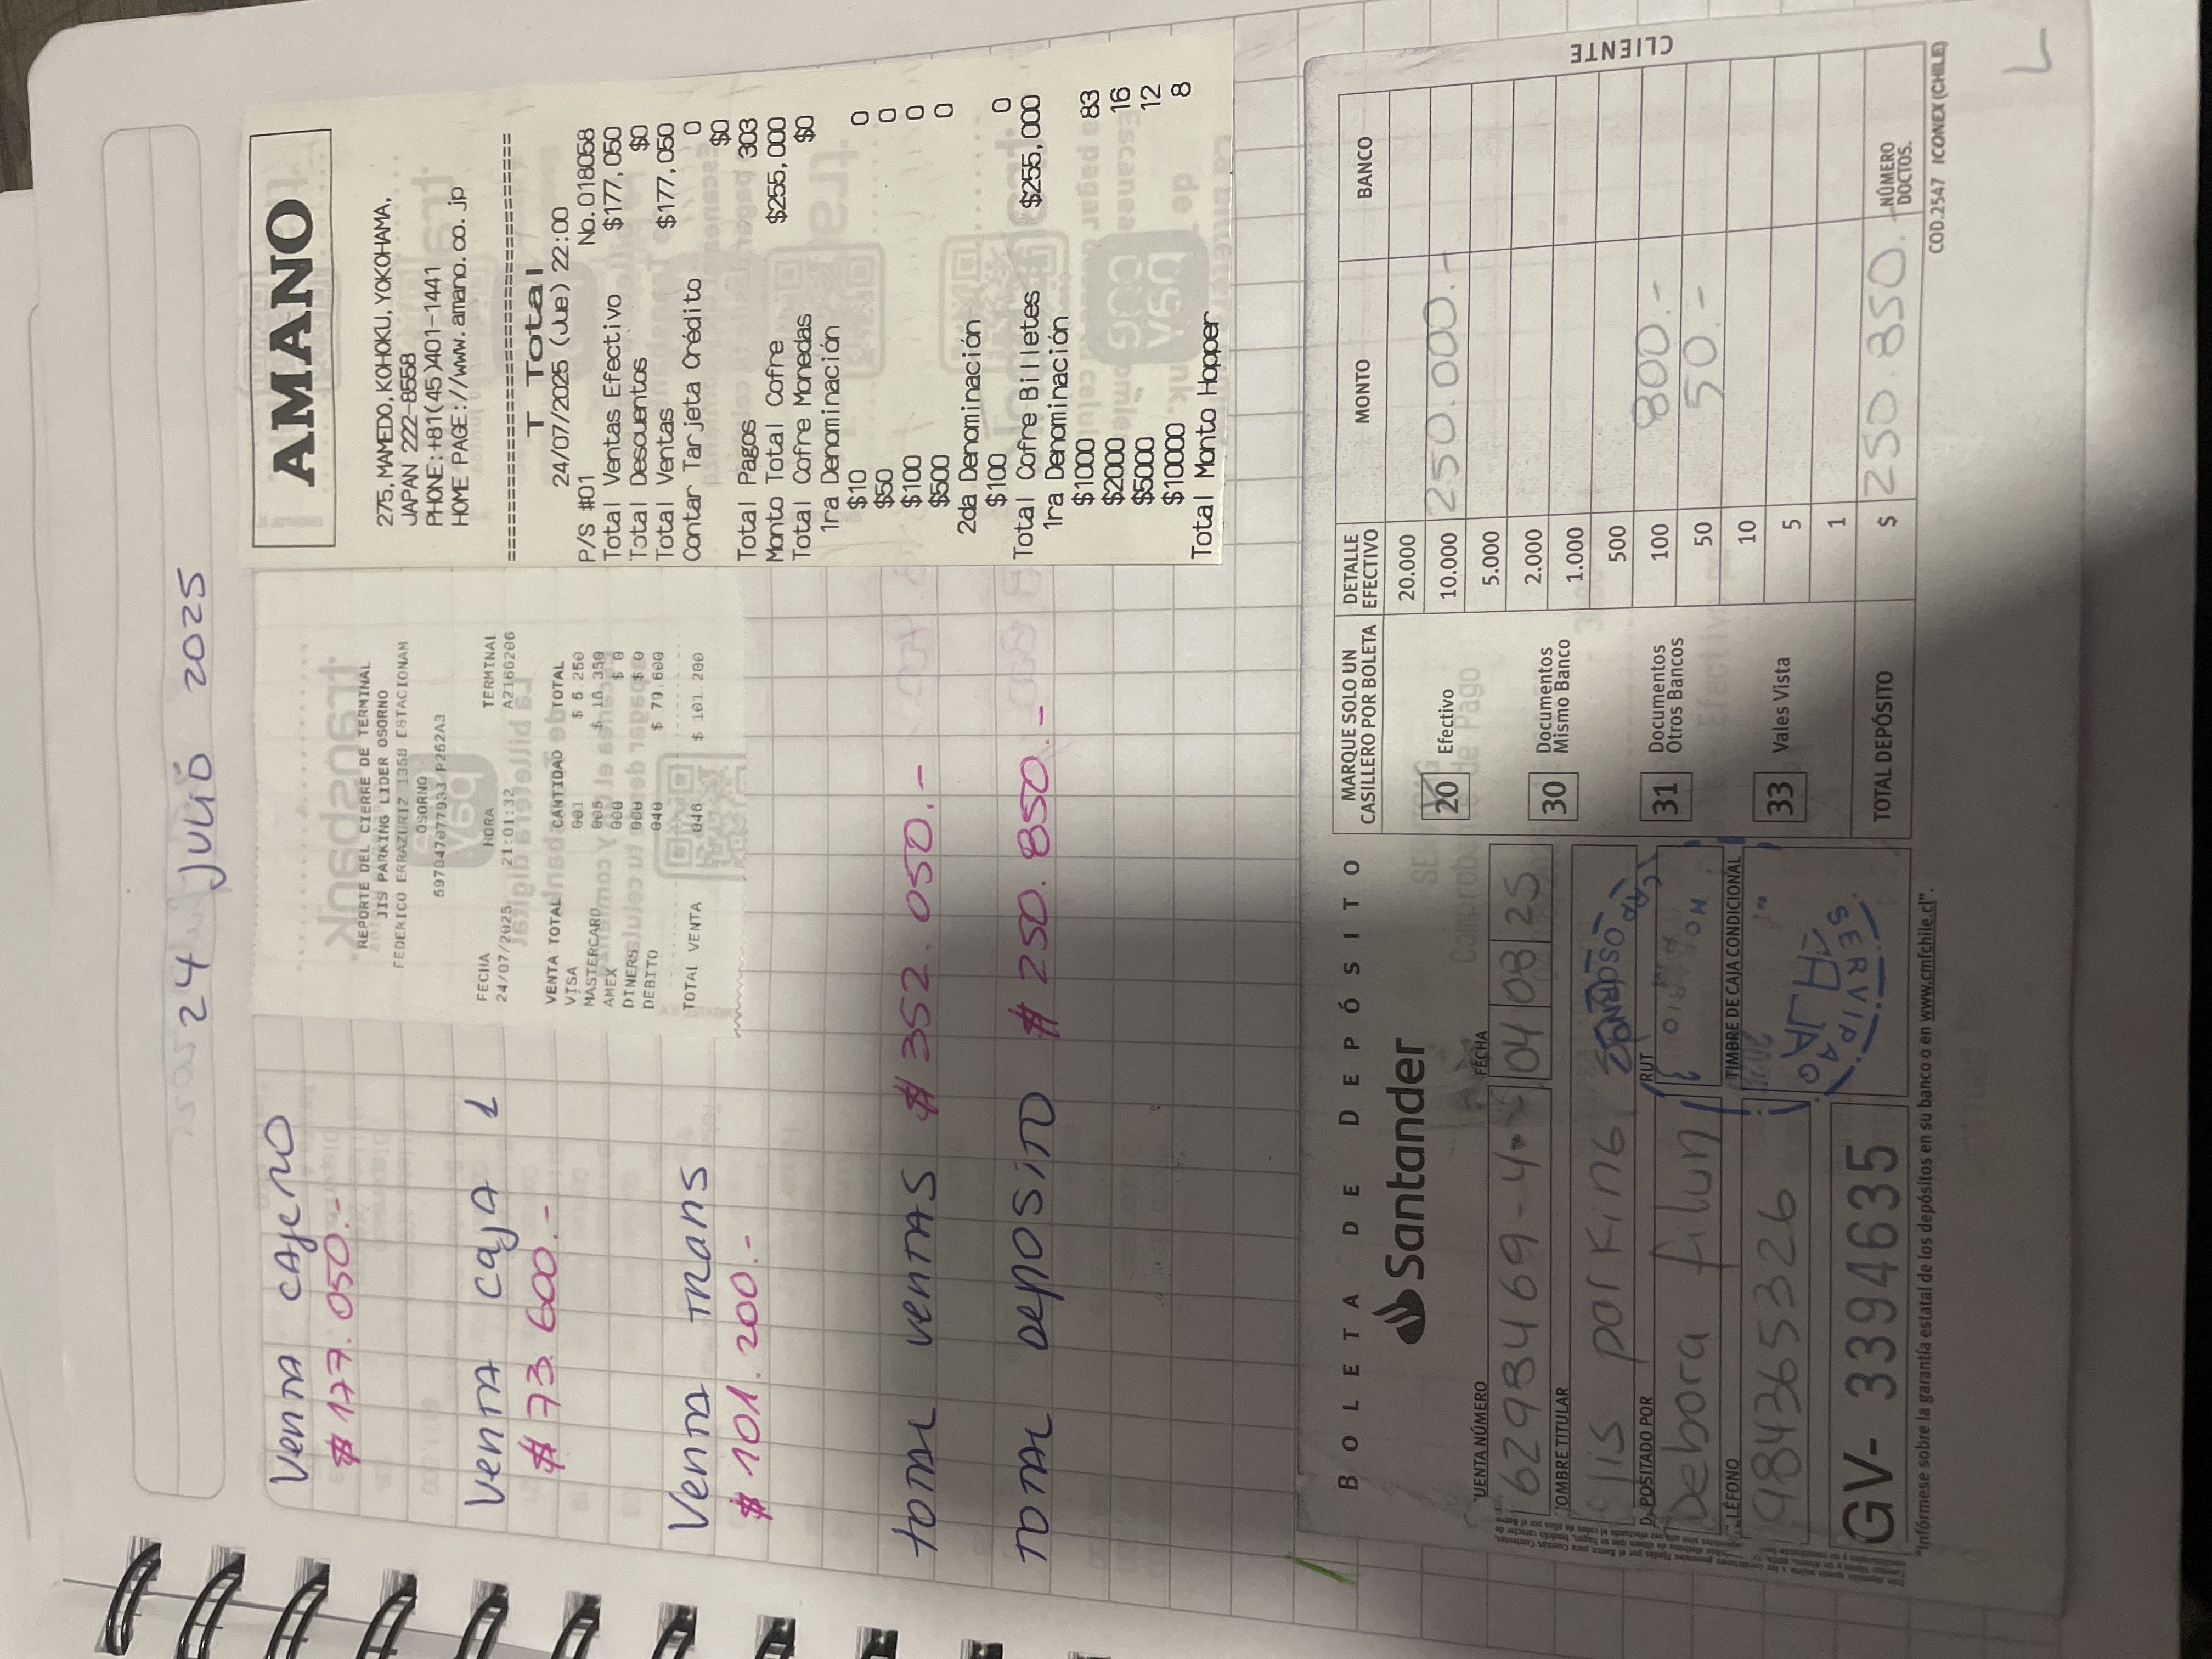 24 JULIO 2025
Venta Cajero
$ 177.050.-
Venta Caja 1
$ 73.600.-
Venta Trans
$ 101.200.-
Total Ventas $ 352.050.-
Total Deposito $ 250.850.-
REPORTE DEL CIERRE DE TERMINAL
JIS PARKING LIDER OSORNO
FEDERICO ERRAZURIZ 1368 ESTACIONAM
OSORNO
FECHA HORA TERMINAL
24/07/2025 21:01:32 A2166206
VENTA TOTAL CANTIDAD TOTAL
VISA 001 $ 5.250
MASTERCARD 005 $ 16.350
AMEX 000 $ 0
DINERS 000 $ 0
DEBITO 040 $ 79.600
TOTAL VENTA 046 $ 101.200
AMANO
275,MAMEDO,KOHOKU,YOKOHAMA,
JAPAN 222-8558
PHONE:+81(45)401-1441
HOME PAGE://www.amano.co.jp
================================
T Total
24/07/2025 (Jue) 22:00
P/S #01 No.018058
Total Ventas Efectivo $177,050
Total Descuentos $0
Total Ventas $177,050
Contar Tarjeta Crédito 0
$0
Total Pagos 303
Monto Total Cofre $255,000
Total Cofre Monedas $0
1ra Denominación
$10 0
$50 0
$100 0
$500 0
2da Denominación
$100 0
Total Cofre Billetes $255,000
1ra Denominación
$1000 83
$2000 16
$5000 12
$10000 8
Total Monto Hopper
BOLETA DE DEPÓSITO
Santander
FECHA
04 08 25
UENTA NÚMERO
62984469-4
OMBRE TITULAR
Jis parking
RUT
POSITADO POR
Debora Ailun
LÉFONO
984365326
TIMBRE DE CAJA CONDICIONAL
OSORNO
SERVIPAG
GV- 3394635
MARQUE SOLO UN CASILLERO POR BOLETA
20 Efectivo
30 Documentos Mismo Banco
31 Documentos Otros Bancos
33 Vales Vista
DETALLE EFECTIVO MONTO BANCO
20.000
10.000 250.000.-
5.000
2.000
1.000
500
100 800.-
50 50.-
10
5
1
TOTAL DEPÓSITO $ 250.850.- NÚMERO DOCTOS.
CLIENTE
"Infórmese sobre la garantía estatal de los depósitos en su banco o en www.cmfchile.cl".
COD.2547 ICONEX (CHILE)